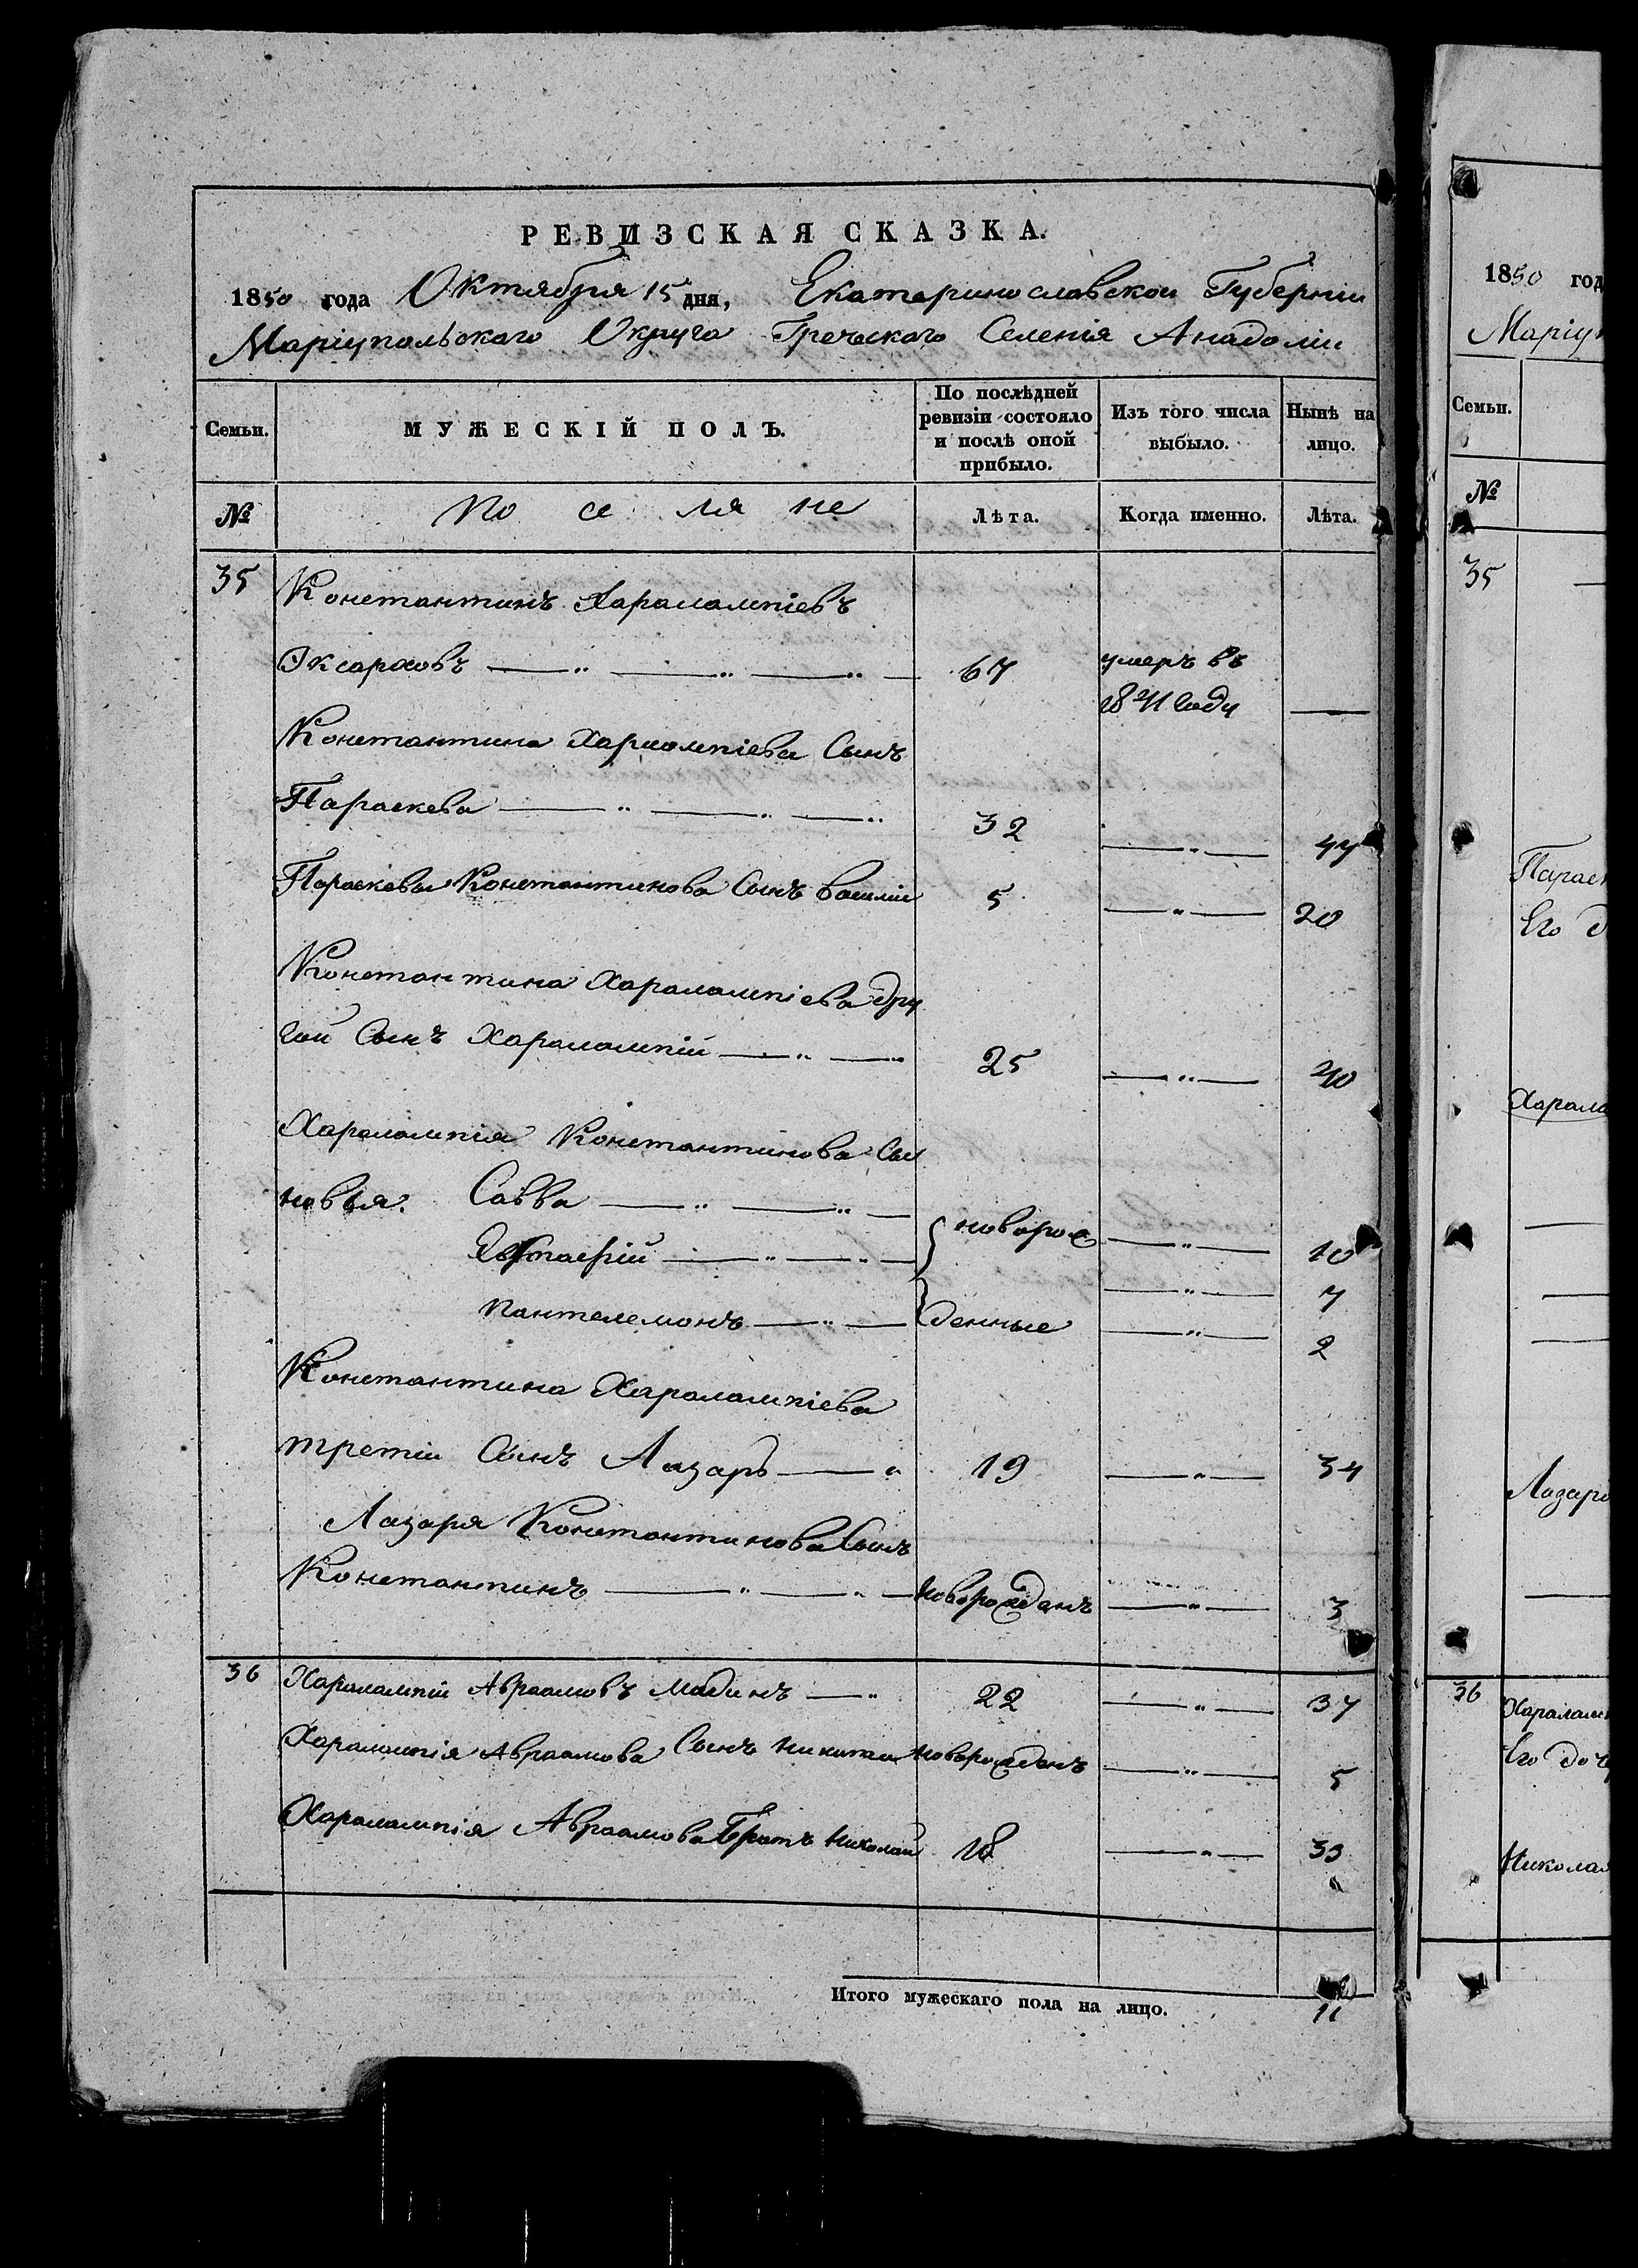 РЕВИЗСКАЯ СКАЗКА.
1850 года Октября 15 дня, Екатеринославской Губерніи
Маріупольскаго Округа Греческаго Селенія Анадоліи
Семьи. МУЖЕСКІЙ ПОЛЪ. По послѣдней ревизіи состояло и послѣ оной прибыло. Изъ того числа выбыло. Нынѣ на лицо.
№ По се ля не Лѣта. Когда именно. Лѣта.
35 Константинъ Харалампіевъ
Эксарховъ 67 умеръ въ
1841 году
Константина Харлампіева Сынъ
Параскева 32 47
Параскевы Константинова Сынъ Василіи 5 20
Константина Харалампіева дру
гой Сынъ Харалампій 25 40
Харалампія Константинова Сы
новья: Савва новорож 10
7
Пантелемонъ денные 2
Константина Харалампіева
третіи Сынъ Лазарь 19 34
Лазаря Константинова Сынъ
Константинъ новорожденъ 3
36 Харалампіи Авраамовъ Мадинъ 22 37
Харалампія Авраамова Сынъ Никита новорожденъ 5
Харалампія Авраамова Братъ Николай 18 33
Итого мужескаго пола на лицо. 11
1850 год
Маріу
Семьи.
№
35
Парас
Его д
Харала
Лазар
36 Харалам
Его доч
Николая